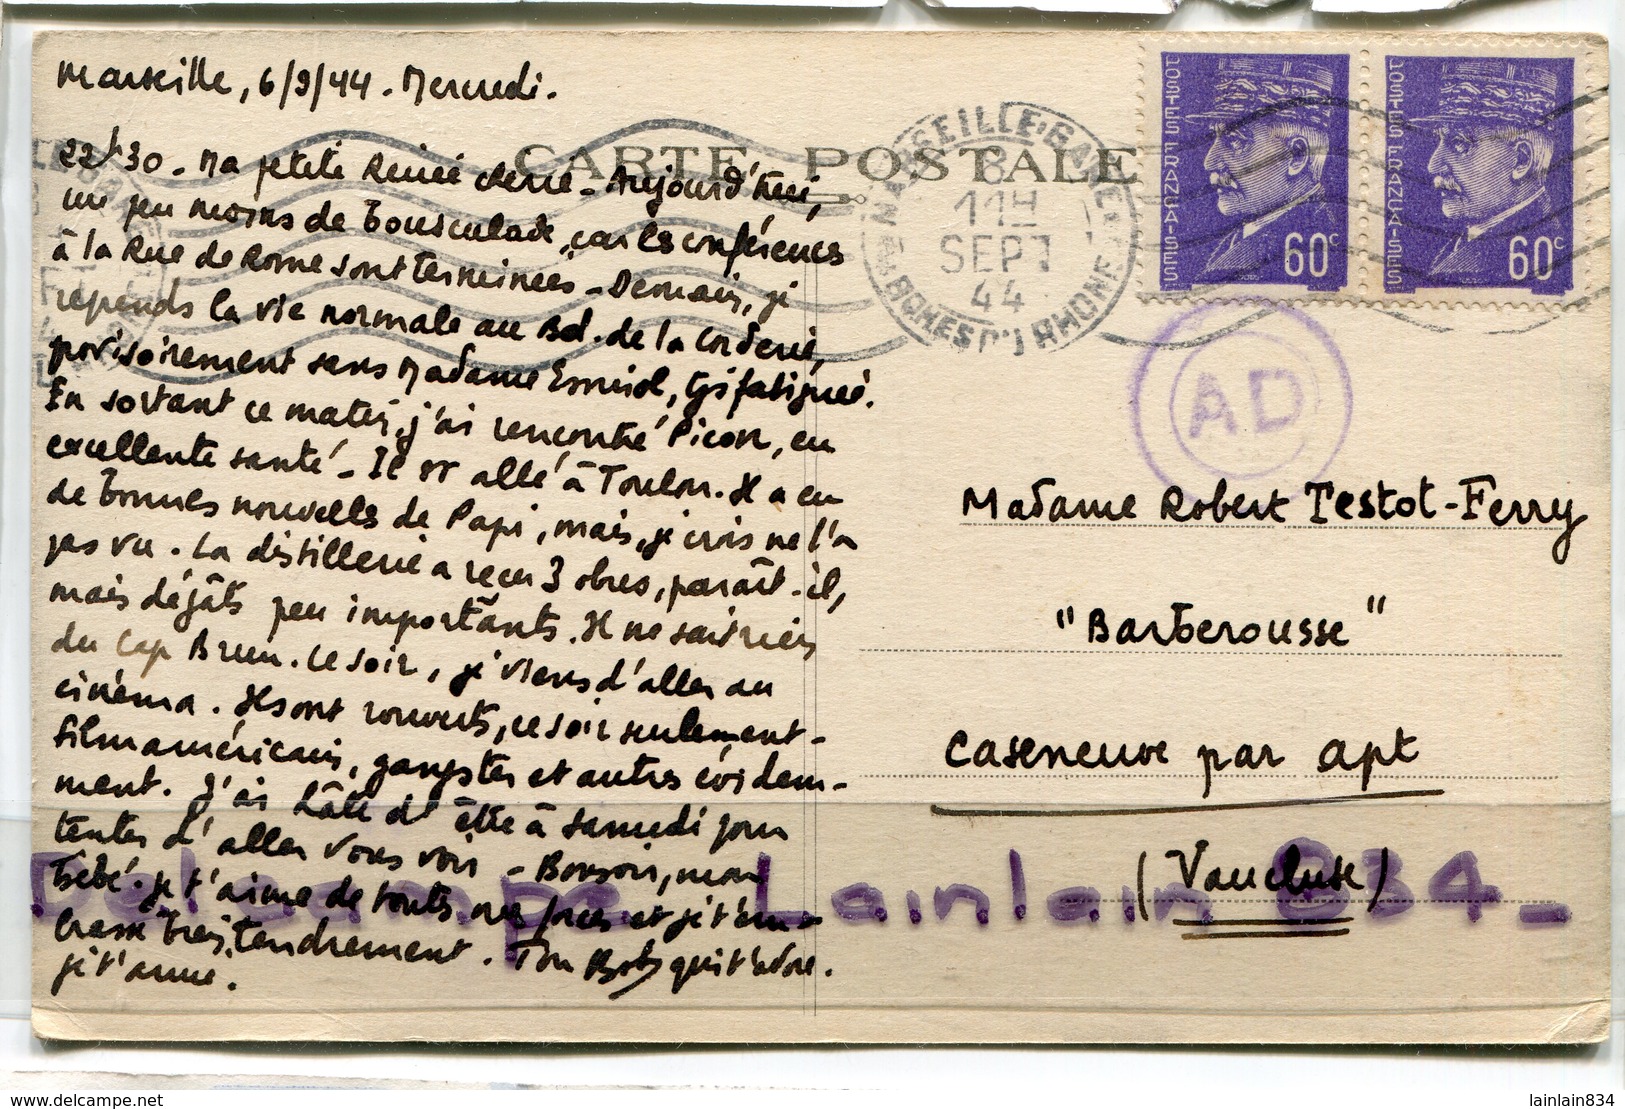 Marseille, 6/9/44. Mercredi.
22h30 - Ma petite Reinée chérie - Aujourd'hui,
un peu moins de bousculade, car les conférences
à la Rue de Rome sont terminées - Demain, je
reprends la vie normale au Bd. de la Corderie,
provisoirement sans Madame Esmiol, très fatiguée.
En sortant ce matin, j'ai rencontré Picon, en
excellente santé - Il est allé à Toulon. Il a eu
de bonnes nouvelles de Papi, mais, je crois ne l'a
pas vu. La distillerie a reçu 3 obus, paraît-il,
mais dégâts peu importants. Il ne sait rien
du Cap Brun. Ce soir, je viens d'aller au
cinéma. Ils sont rouverts, ce soir seulement -
film américain, gangster et autres évidem-
ment. J'ai hâte d'être à samedi pour
tenter d'aller vous voir - Bonsoir, mon
bébé. Je t'aime de toutes mes forces et je t'em-
brasse très tendrement. Ton Bob qui t'adore.
je t'aime.
CARTE POSTALE
MARSEILLE-GARE
8
11H
SEPT
44
BCHES DU RHONE
POSTES FRANÇAISES
60c
POSTES FRANÇAISES
60c
AD
Madame Robert Testot-Ferry
"Barberousse"
Caseneuve par apt
(Vaucluse)
Delcampe - Lainlain 834 -
Copyright delcampe.net
lainlain834